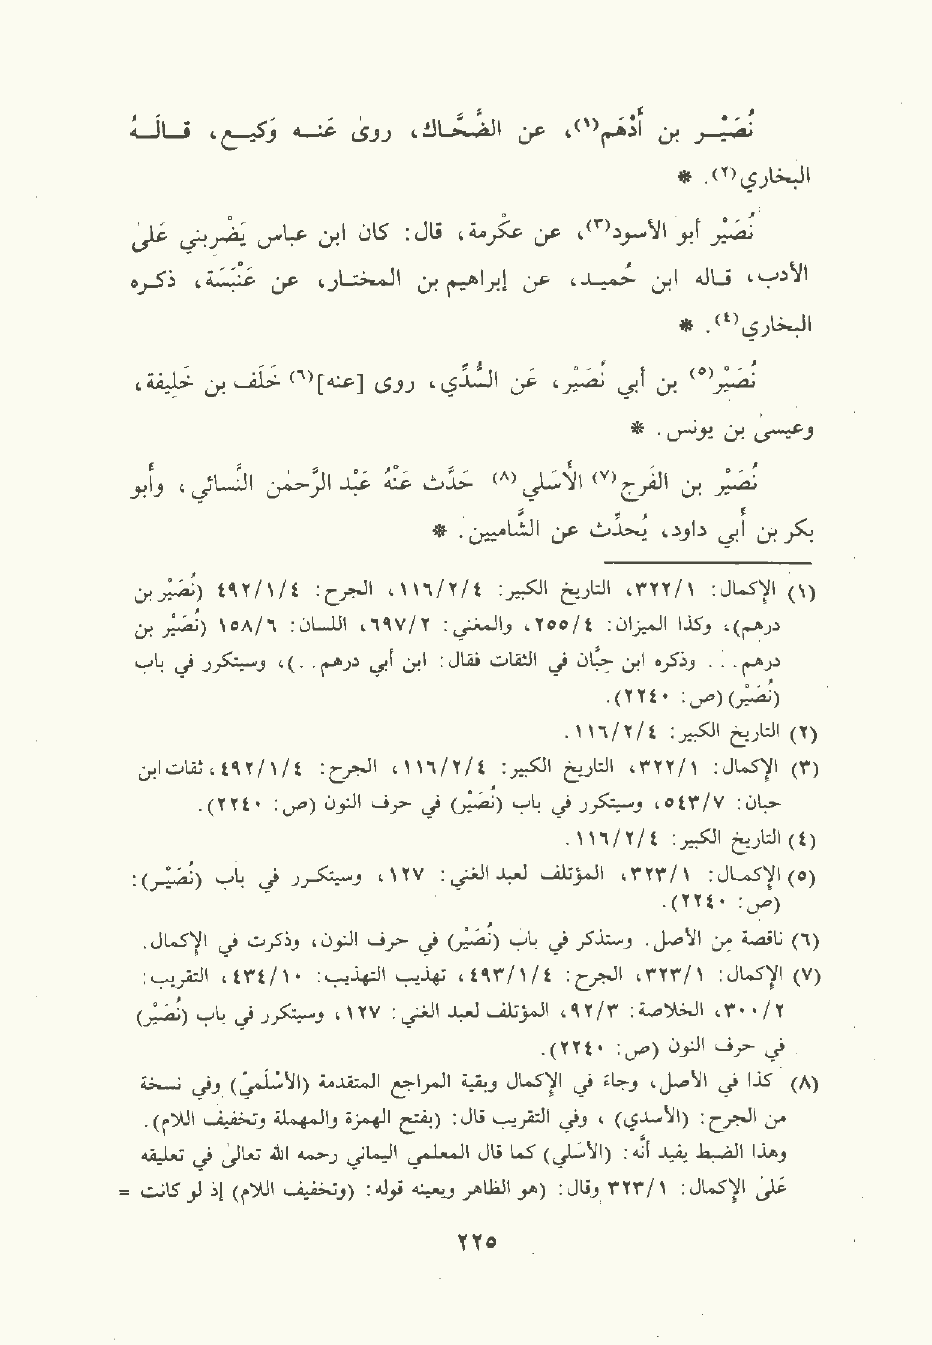 نُصَيْـر بن أَدْهَم(١)، عن الضَّحَّـاك، روىٰ عنـه وَكيـع، قـالَـهُ
البخاري(٢). *
نُصَيْر أبو الأسود(٣)، عن عكْرمة، قال: كان ابن عباس يَضْربني علىٰ
الأدب، قـاله ابن حُميـد، عن إبراهيم بن المختـار، عن عَنْبَسَة، ذكـره
البخاري(٤). *
نُصَيْر(٥) بن أبي نُصَيْر، عن السُّدِّي، روى [عنه](٦) خَلَف بن خَلِيفة،
وعيسىٰ بن يونس. *
نُصَيْر بن الفَرج(٧) الأَسَلي(٨) حَدَّث عَنْهُ عَبْد الرَّحمٰن النَّسائي، وأَبو
بكر بن أَبي داود، يُحدِّث عن الشَّاميين. *
(١) الإكمال: ٣٢٢/١، التاريخ الكبير: ١١٦/٢/٤، الجرح: ٤٩٢/١/٤ (نُصَيْر بن
درهم)، وكذا الميزان: ٢٥٥/٤، والمغني: ٦٩٧/٢، اللسان: ١٥٨/٦ (نُصَيْر بن
درهم... وذكره ابن حِبَّان في الثقات فقال: ابن أبي درهم..)، وسيتكرر في باب
(نُصَيْر) (ص: ٢٢٤٠).
(٢) التاريخ الكبير: ١١٦/٢/٤.
(٣) الإكمال: ٣٢٢/١، التاريخ الكبير: ١١٦/٢/٤، الجرح: ٤٩٢/١/٤، ثقات ابن
حبان: ٥٤٣/٧، وسيتكرر في باب (نُصَيْر) في حرف النون (ص: ٢٢٤٠).
(٤) التاريخ الكبير: ١١٦/٢/٤.
(٥) الإكمـال: ٣٢٣/١، المؤتلف لعبد الغني: ١٢٧، وسيتكـرر في باب (نُصَيْـر):
(ص: ٢٢٤٠).
(٦) ناقصة من الأصل. وستذكر في باب (نُصَيْر) في حرف النون، وذكرت في الإكمال.
(٧) الإكمال: ٣٢٣/١، الجرح: ٤٩٣/١/٤، تهذيب التهذيب: ٤٣٤/١٠، التقريب:
٣٠٠/٢، الخلاصة: ٩٢/٣، المؤتلف لعبد الغني: ١٢٧، وسيتكرر في باب (نُصَيْر)
في حرف النون (ص: ٢٢٤٠).
(٨) كذا في الأصل، وجاء في الإكمال وبقية المراجع المتقدمة (الأسْلَميّ) وفي نسخة
من الجرح: (الأسدي) ، وفي التقريب قال: (بفتح الهمزة والمهملة وتخفيف اللام).
وهذا الضبط يفيد أنَّه: (الأسَلي) كما قال المعلمي اليماني رحمه الله تعالىٰ في تعليقه
علىٰ الإكمال: ٣٢٣/١ وقال: (هو الظاهر ويعينه قوله: (وتخفيف اللام) إذ لو كانت =
٢٢٥